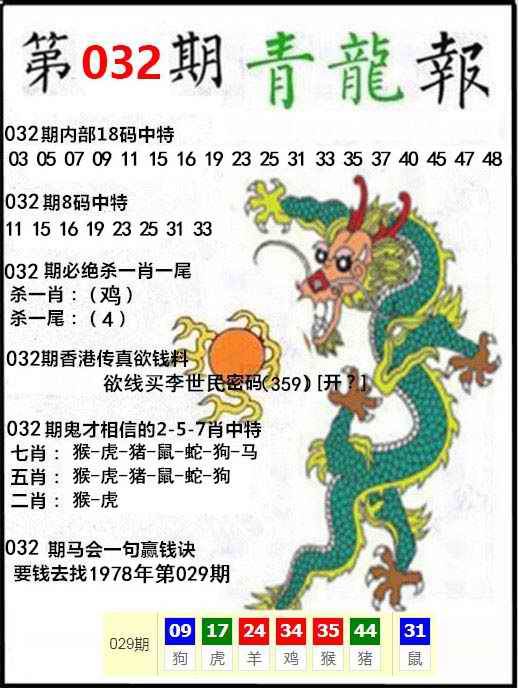 第032期青龍報
032期内部18码中特
03 05 07 09 11 15 16 19 23 25 31 33 35 37 40 45 47 48
032期8码中特
11 15 16 19 23 25 31 33
032期必绝杀一肖一尾
杀一肖：（鸡）
杀一尾：（4）
032期香港传真欲钱料
欲线买李世民密码(359)[开？]
032期鬼才相信的2-5-7肖中特
七肖：猴-虎-猪-鼠-蛇-狗-马
五肖：猴-虎-猪-鼠-蛇-狗
二肖：猴-虎
032 期马会一句赢钱诀
要钱去找1978年第029期
029期 09 17 24 34 35 44 31
狗 虎 羊 鸡 猴 猪 鼠